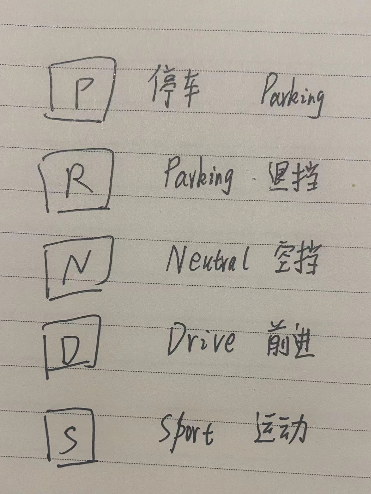 P 停车 Parking
R Parking 退挡
N Neutral 空挡
D Drive 前进
S Sport 运动